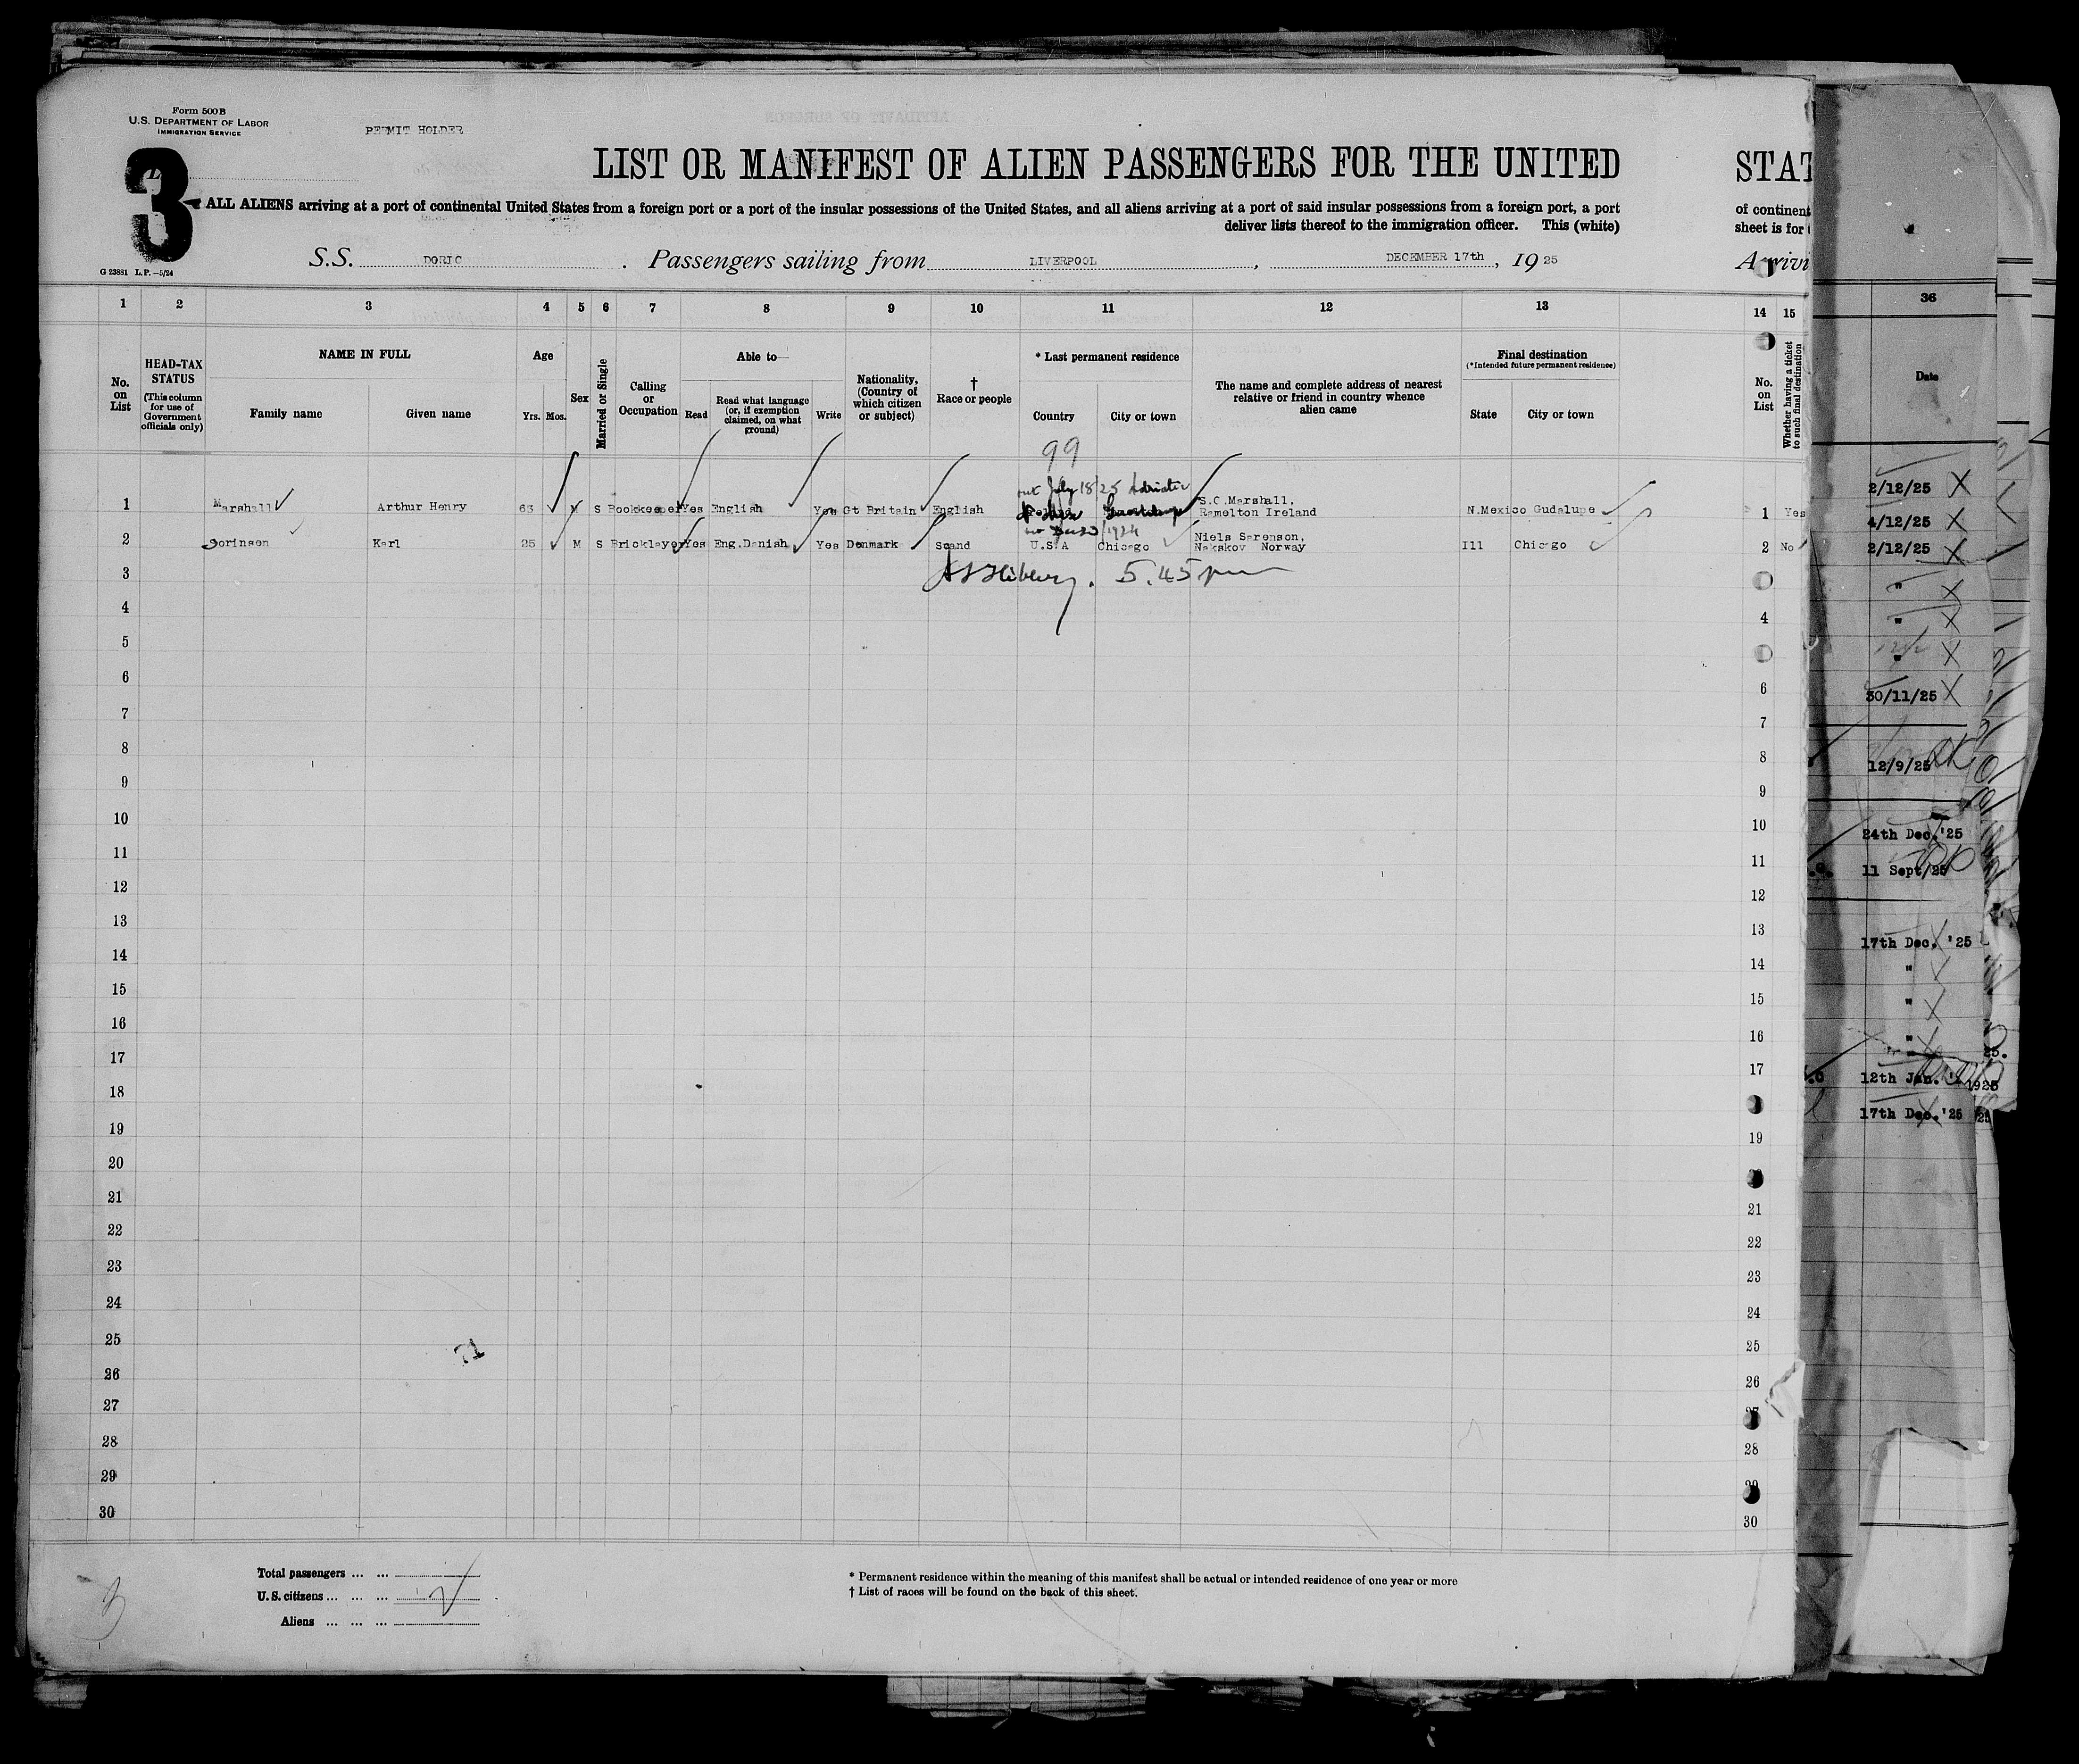 Form 500B
U.S. DEPARTMENT OF LABOR
IMMIGRATION SERVICE
PERMIT HOLDER
3
LIST OR MANIFEST OF ALIEN PASSENGERS FOR THE UNITED STAT
ALL ALIENS arriving at a port of continental United States from a foreign port or a port of the insular possessions of the United States, and all aliens arriving at a port of said insular possessions from a foreign port, a port of continent
deliver lists thereof to the immigration officer. This (white) sheet is for
G 23881 L.P.—5/24
S.S. DORIC . Passengers sailing from LIVERPOOL , DECEMBER 17th , 1925 Arrivi
1 2 3 4 5 6 7 8 9 10 11 12 13 14 15 36
No. on List
HEAD-TAX STATUS
(This column for use of Government officials only)
NAME IN FULL
Family name Given name
Age
Yrs. Mos.
Sex
Married or Single
Calling or Occupation
Able to
Read
Read what language (or, if exemption claimed, on what ground)
Write
Nationality, (Country of which citizen or subject)
† Race or people
* Last permanent residence
Country City or town
The name and complete address of nearest relative or friend in country whence alien came
Final destination
(*Intended future permanent residence)
State City or town
No. on List
Whether having a ticket to such final destination
Date
99
out July 18/25 Adriatic
1 Marshall Arthur Henry 63 M S Bookkeeper Yes English Yes Gt Britain English S.C.Marshall, Ramelton Ireland N.Mexico Gudalupe 1 Yes
1924
2 Sorinsen Karl 25 M S Bricklayer Yes Eng.Danish Yes Denmark Scand U.S.A Chicago Niels Sarenson, Nakskov Norway Ill Chicago 2 No
5.45 pm
3
4 4
5
6 6
7 7
8 8
9 9
10 10
11 11
12 12
13 13
14 14
15 15
16 16
17 17
18
19 19
20
21 21
22 22
23 23
24 24
25 25
26 26
27 27
28 28
29 29
30 30
2/12/25
4/12/25
2/12/25
"
"
"
30/11/25
12/9/25
24th Dec.'25
11 Sept/25
17th Dec. '25
"
"
"
25.
12th Jan.' 1925
17th Dec.'25 25
Total passengers ... ...
U.S. citizens ... ... ...
Aliens ... ... ...
* Permanent residence within the meaning of this manifest shall be actual or intended residence of one year or more
† List of races will be found on the back of this sheet.
3